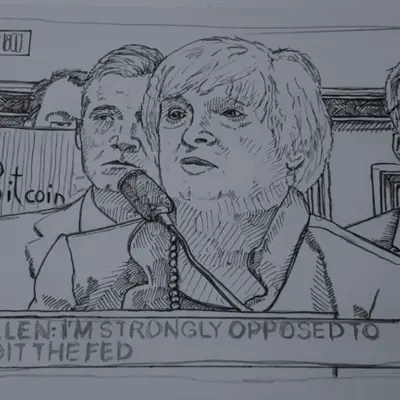 Bitcoin
LLEN: I'M STRONGLY OPPOSED TO
DIT THE FED